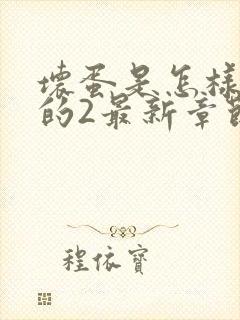 壞蛋是怎樣
的2最新章節
程依寶